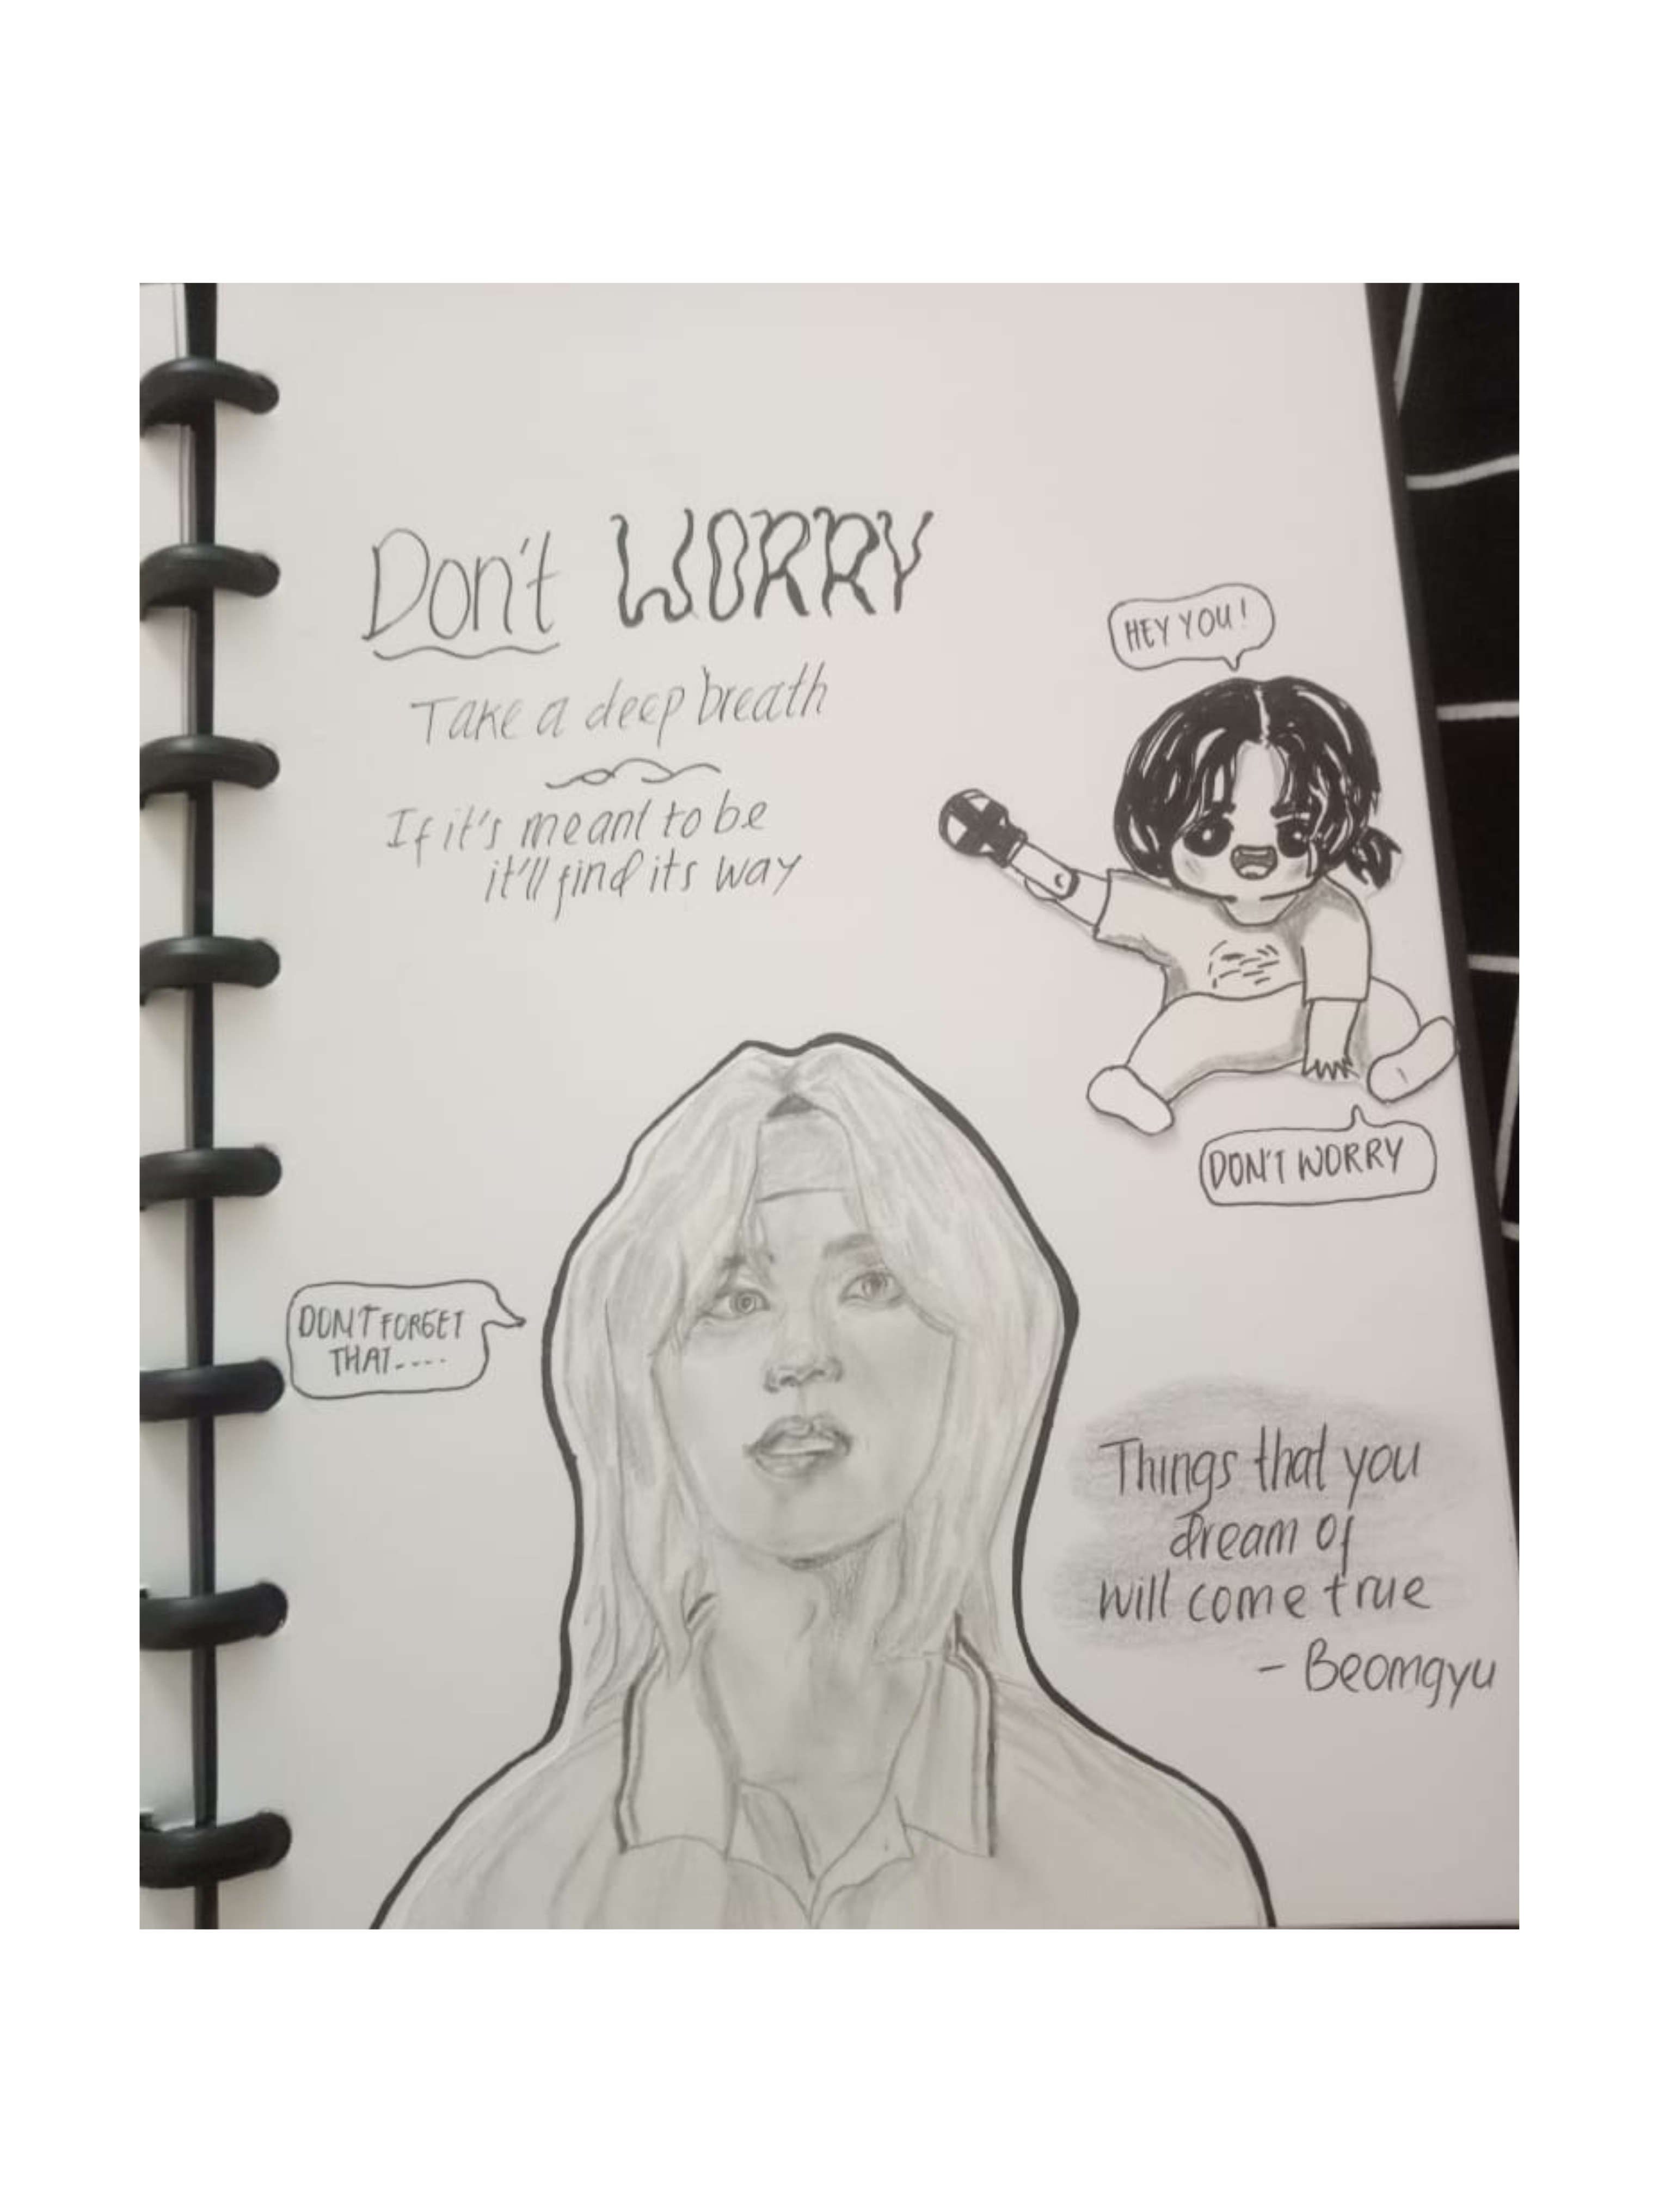 Don't WORRY
Take a deep breath
If it's meant to be
it'll find its way
HEY YOU!
DON'T WORRY
DON'T FORGET
THAT----
Things that you
dream of
will come true
- Beomgyu